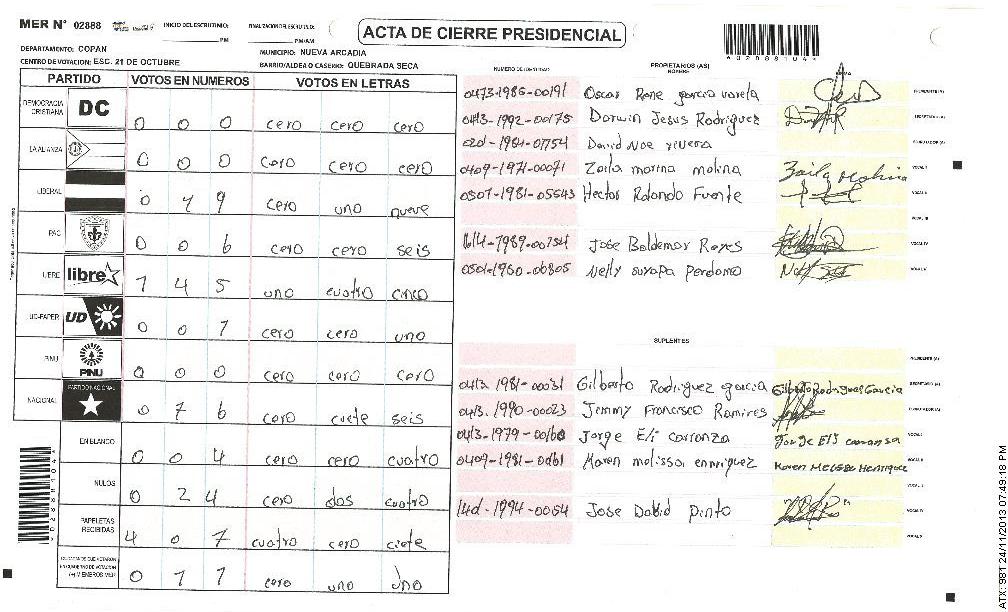 MER N° 02888 INICIO DEL ESCRUTINIO: PM FINALIZACION DEL ESCRUTINIO: PM/AM
ACTA DE CIERRE PRESIDENCIAL
DEPARTAMENTO: COPAN MUNICIPIO: NUEVA ARCADIA
CENTRO DE VOTACION: ESC. 21 DE OCTUBRE BARRIO/ALDEA O CASERIO: QUEBRADA SECA
PARTIDO VOTOS EN NUMEROS VOTOS EN LETRAS
DEMOCRACIA CRISTIANA DC 0 0 0 cero cero cero
LA ALIANZA 0 0 0 cero cero cero
LIBERAL 0 1 9 cero uno nueve
PAC 0 0 6 cero cero seis
LIBRE libre 1 4 5 uno cuatro cinco
UD-FAPER UD 0 0 1 cero cero uno
PINU PINU 0 0 0 cero cero cero
NACIONAL PARTIDO NACIONAL 0 7 6 cero ciete seis
EN BLANCO 0 0 4 cero cero cuatro
NULOS 0 2 4 cero dos cuatro
PAPELETAS RECIBIDAS 4 0 7 cuatro cero ciete
0 1 1 cero uno uno
NUMERO DE IDENTIDAD PROPIETARIOS (AS) NOMBRE FIRMA
0413-1986-00191 Oscar Rene garcia varela PRESIDENTE (A)
0413-1992-00175 Darwin Jesus Rodriguez SECRETARIO (A)
David Noe rivera ESCRUTADOR (A)
0409-1971-00071 Zoila marina molina Zoila Molina VOCAL I
0507-1981-05543 Hector Rolando Fuente VOCAL II
VOCAL III
Jose Baldemar Reyes VOCAL IV
0501-1960-06805 Nelly suyapa perdomo VOCAL V
SUPLENTES
PRESIDENTE (A)
0413 1981-00031 Gilberto Rodriguez garcia Gilberto Rodriguez Garcia SECRETARIO (A)
0413-1990-00023 Jimmy Francisco Ramires ESCRUTADOR (A)
0413-1979-00160 Jorge Eli carranza Jorge Eli carransa VOCAL I
Karen melissa enrriquez Karen Melissa Henriquez VOCAL II
VOCAL III
Jose David pinto VOCAL IV
VOCAL V
ATX: 981 24/11/2013 07:49:18 PM